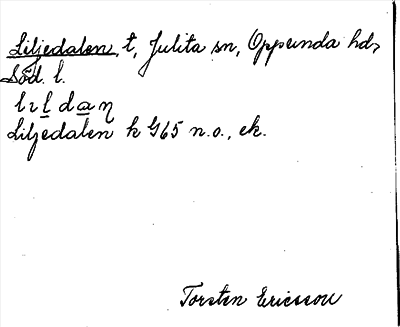 Liljedalen, t, Julita sn, Oppunda hd,
Söd. l.
lıl daη
Liljedalen k G65 n.o., ek.
Torsten Ericsson